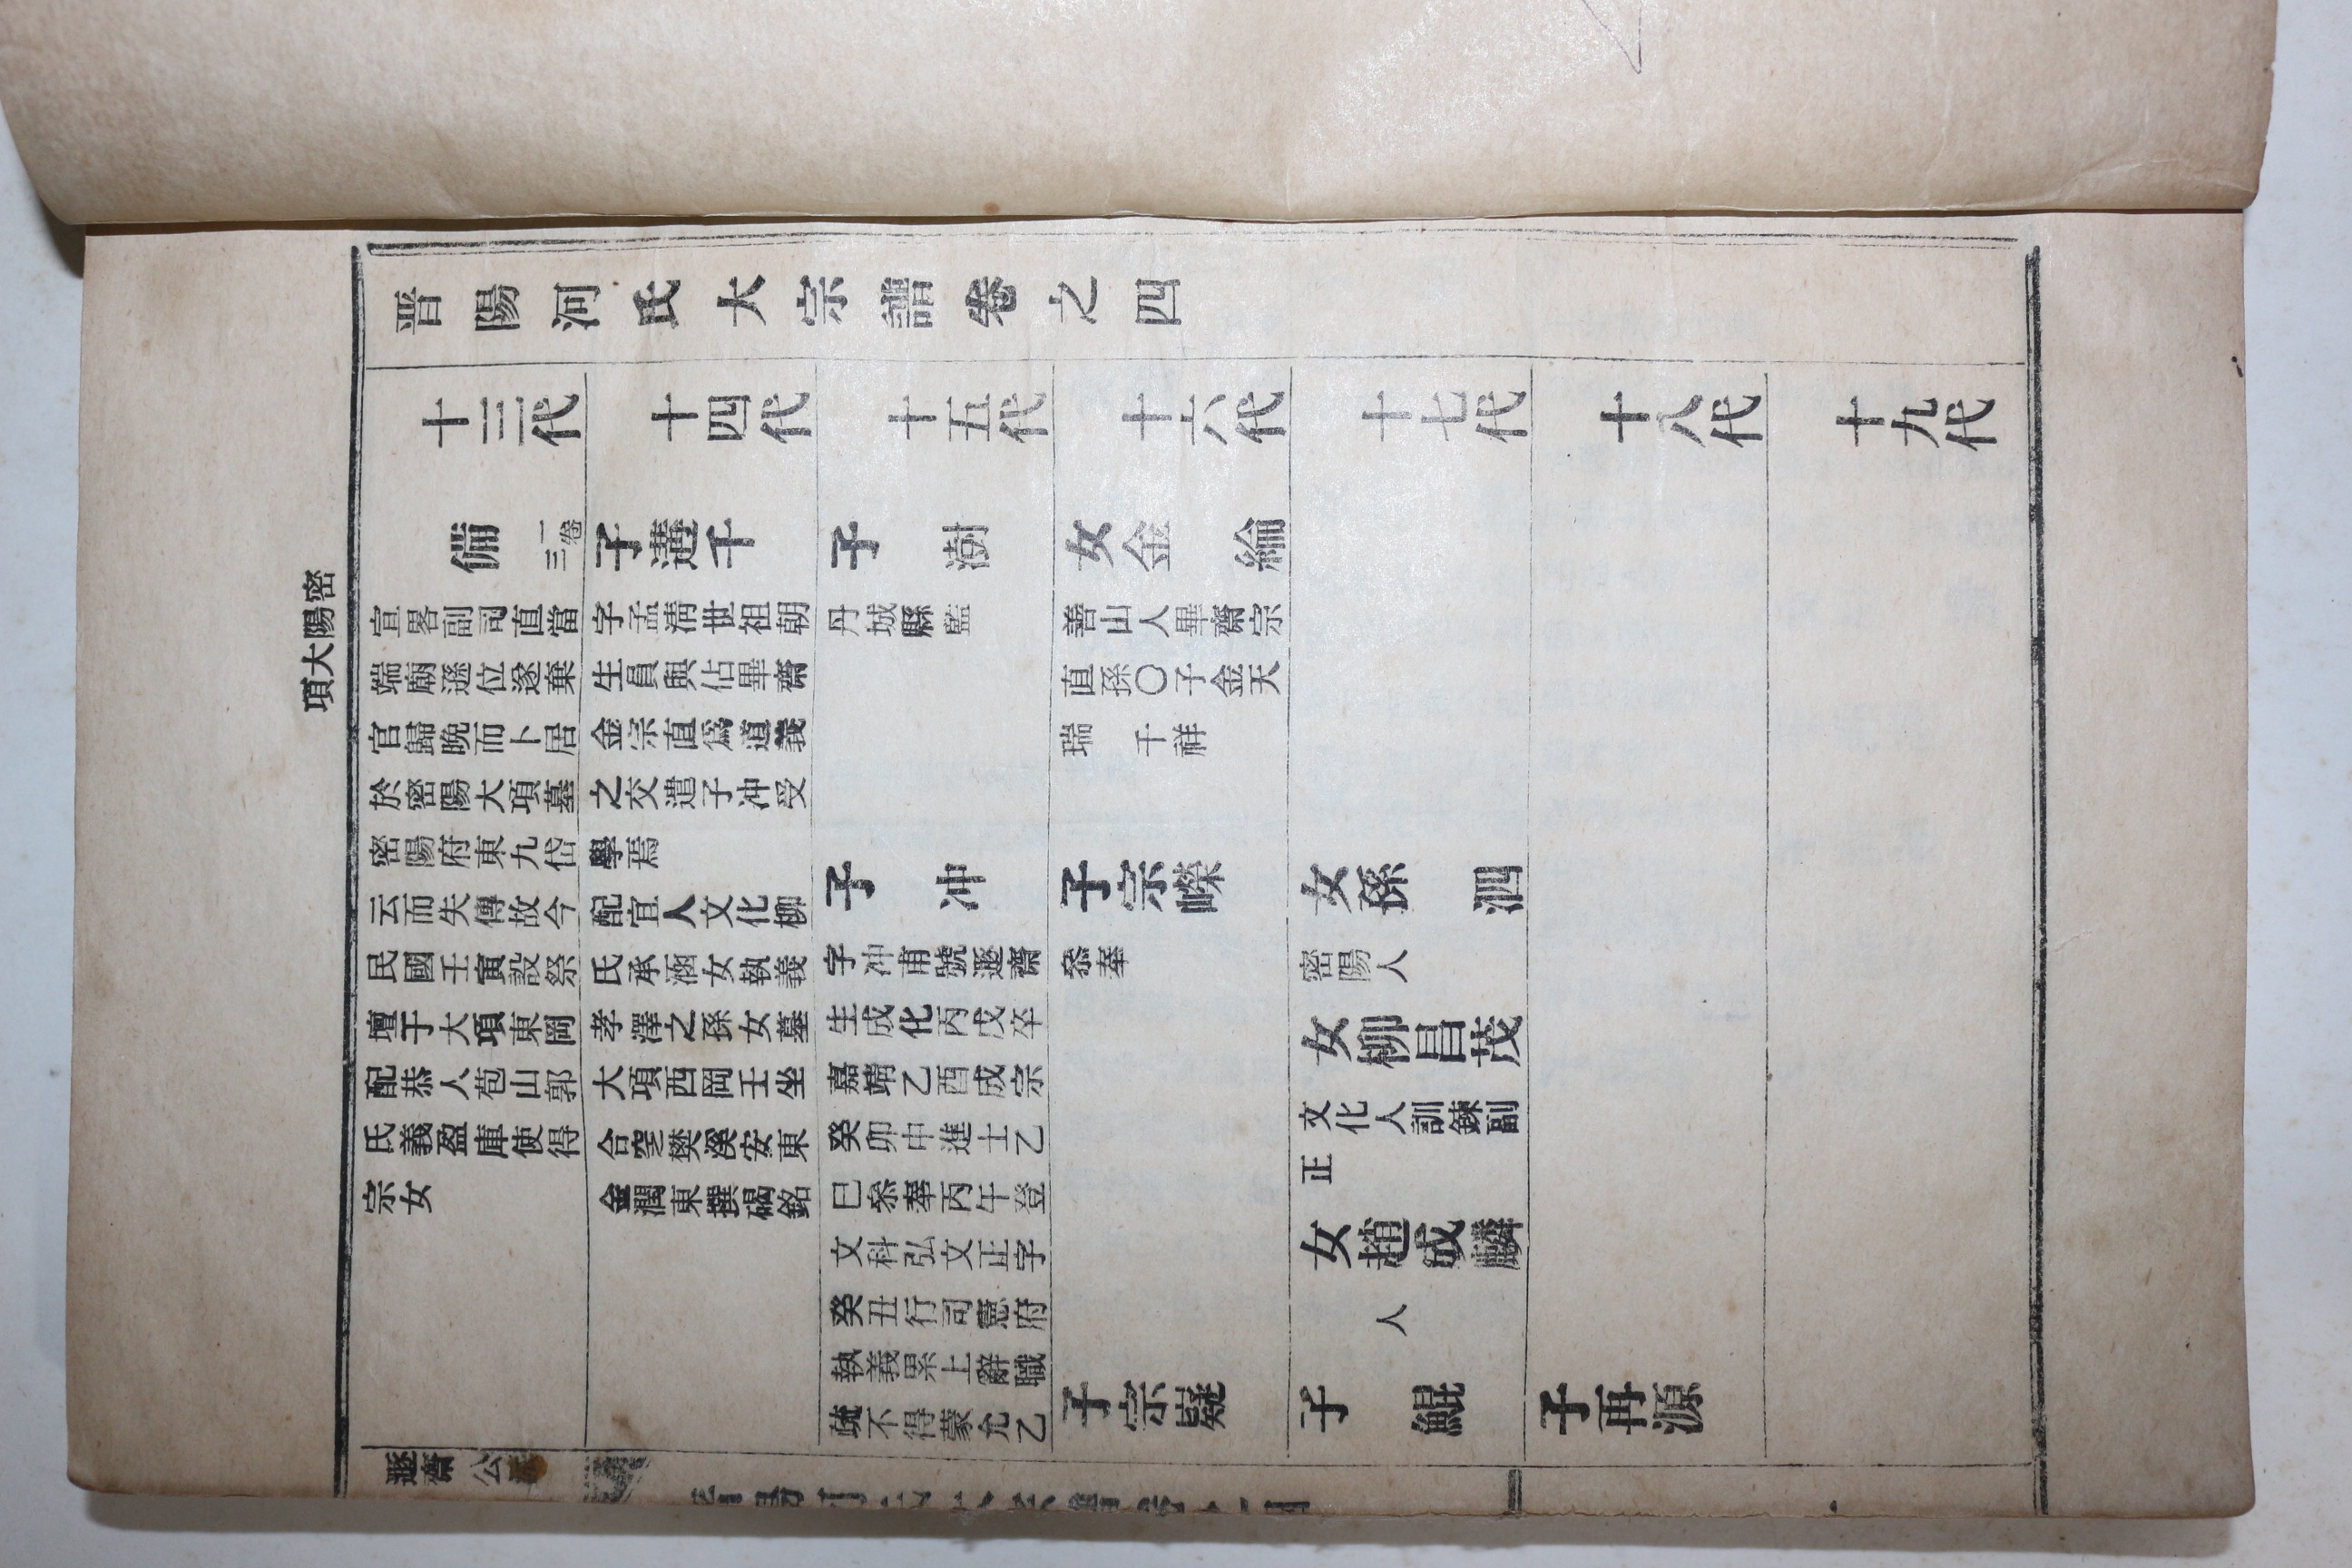 密陽大項
晋陽河氏大宗譜卷之四
十三代
備
一卷
三
宣畧副司直當
端廟遜位遂棄
官歸晩而卜居
於密陽大項墓
密陽府東九岱
云而失傳故今
民國壬寅設祭
壇于大項東岡
配恭人苞山郭
氏義盈庫使得
宗女
十四代
子遘千
字孟淸世祖朝
生員與佔畢齋
金宗直爲道義
之交遣子冲受
學焉
配宜人文化柳
氏承涵女執義
孝澤之孫女墓
大項西岡壬坐
合窆樊溪安東
金潤東撰碣銘
十五代
子澍
丹城縣監
子冲
字冲甫號遯齋
生成化丙戌卒
嘉靖乙酉成宗
癸卯中進士乙
巳叅奉丙午登
文科弘文正字
癸丑行司憲府
執義累上辭職
疏不得蒙允乙
十六代
女金綸
善山人畢齋宗
直孫〇子金天
瑞 千祥
子宗嶸
叅奉
子宗嶷
十七代
女孫泗
密陽人
女柳昌茂
文化人訓鍊副
正
女趙成麟
人
子鯤
十八代
子再源
十九代
遯齋公派